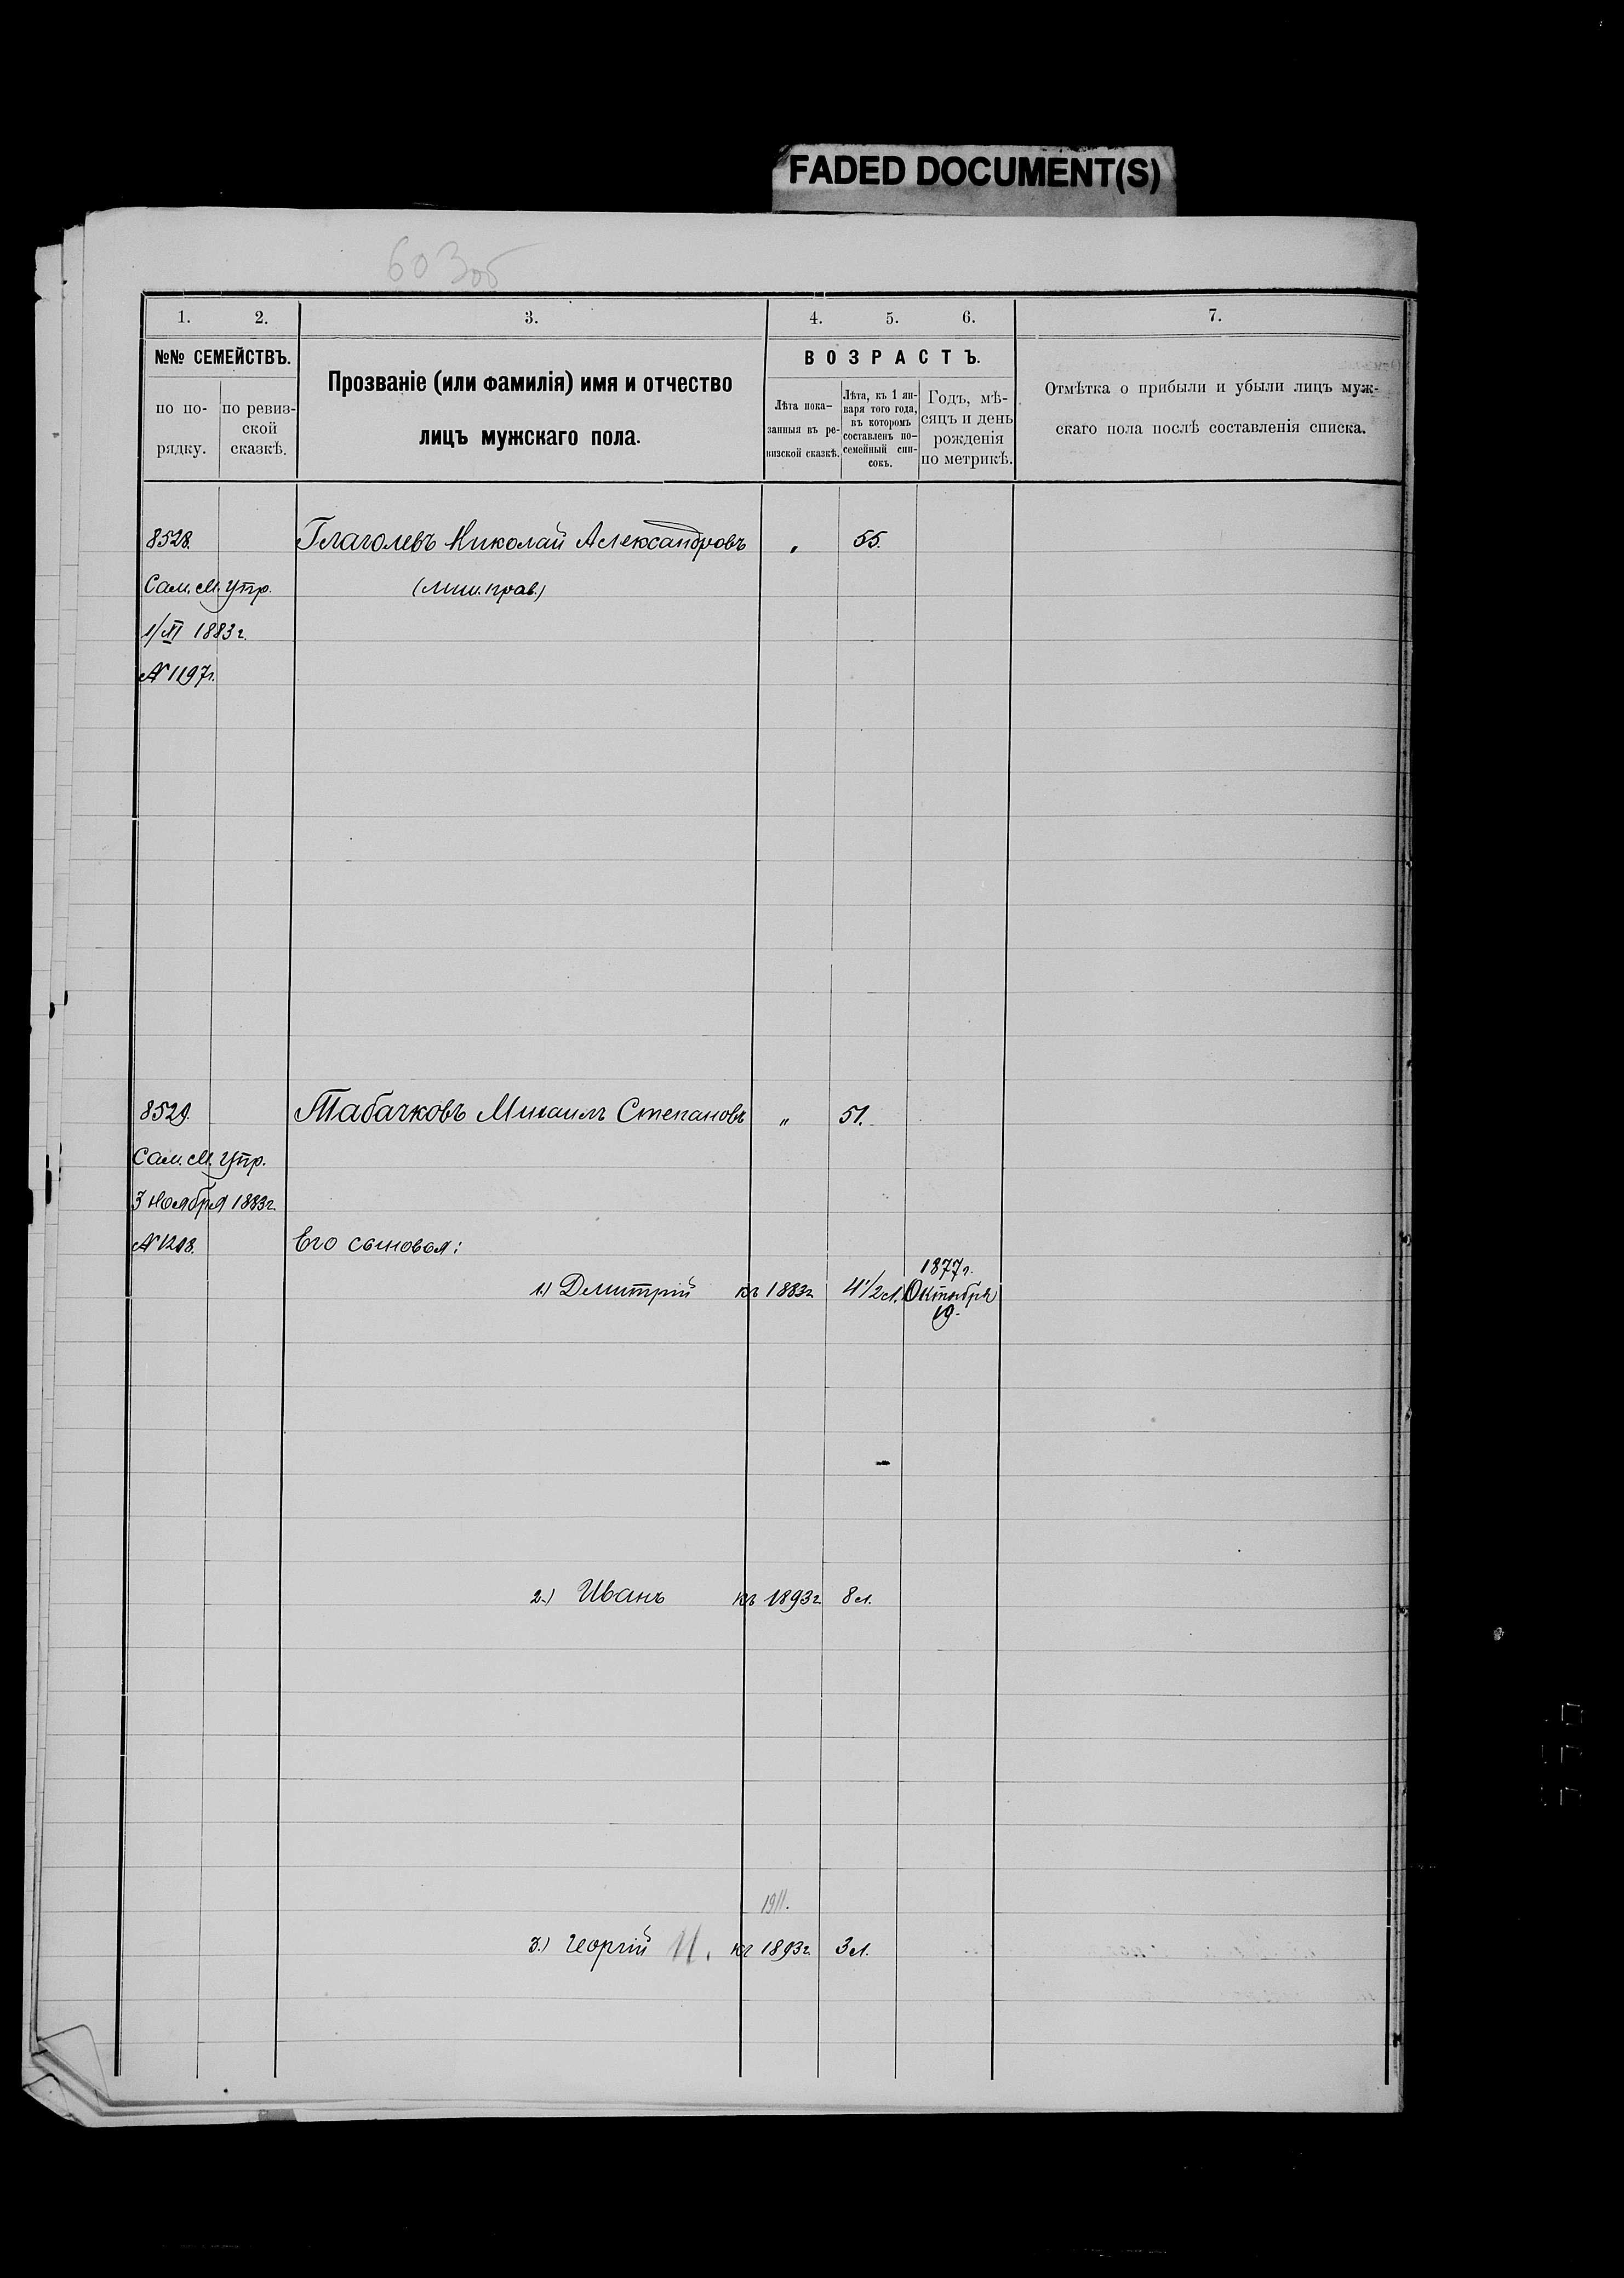 FADED DOCUMENT(S)
603об
1. 2. 3. 4. 5. 6. 7.
№№ СЕМЕЙСТВЪ.
по по-
рядку.
по ревиз-
ской
сказкѣ.
Прозваніе (или фамилія) имя и отчество
лицъ мужскаго пола.
ВОЗРАСТЪ.
Лѣта пока-
занныя въ ре-
визской сказкѣ.
Лѣта, къ 1 ян-
варя того года,
въ которомъ
составленъ по-
семейный спи-
сокъ.
Годъ, мѣ-
сяцъ и день
рожденія
по метрикѣ.
Отмѣтка о прибыли и убыли лицъ муж-
скаго пола послѣ составленія списка.
8528. Глаголевъ Николай Александровъ „ 55.
Сам. М. Упр.
1/XI 1883 г.
8529. Табачковъ Михаилъ Степановъ „ 51.
Сам. М. Упр.
3 Ноября 1883 г.
Его сыновья:
1877 г.
1.) Дмитрій къ 1883 г. 4 1/2 л. Октября
19.
2.) Иванъ къ 1893 г. 8 л.
1911.
3.) Георгій къ 1893 г. 3 л.